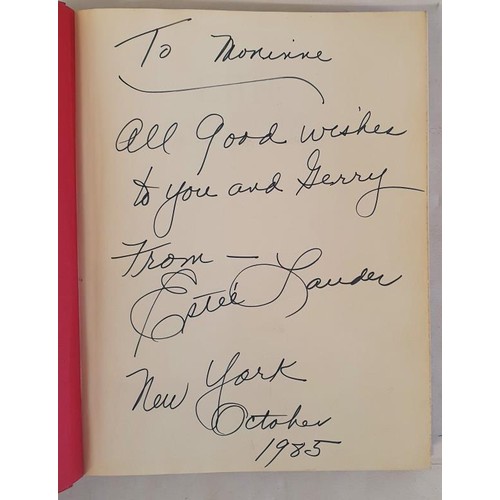 To Moninne
All Good wishes
to you and Gerry
From —
Estée Lauder
New York
October
1985